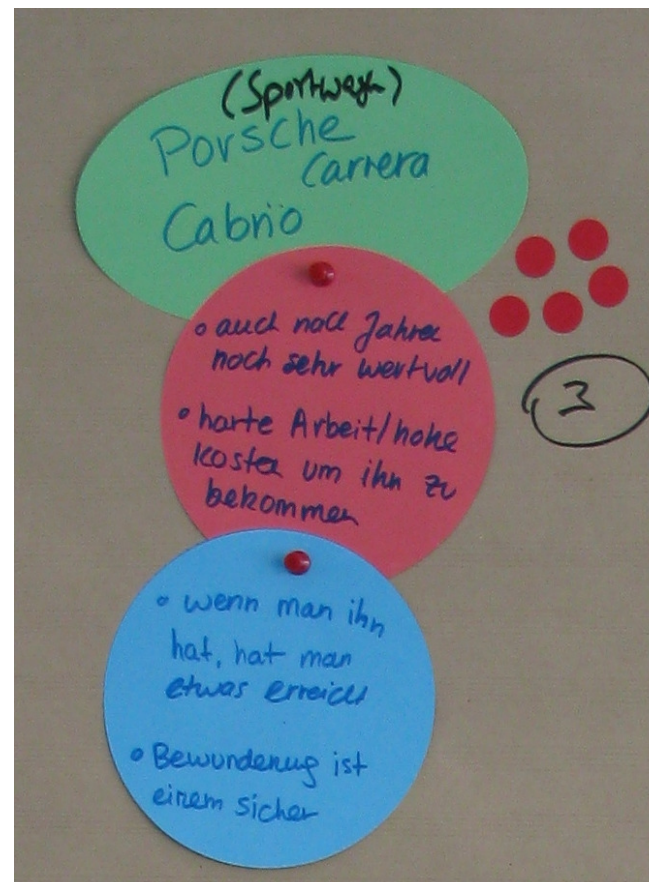 (Sportwagen)
Porsche
Carrera
Cabrio
• auch nach Jahren
noch sehr wertvoll
• harte Arbeit/hohe
Kosten um ihn zu
bekommen
3
• wenn man ihn
hat, hat man
etwas erreicht
• Bewunderung ist
einem sicher